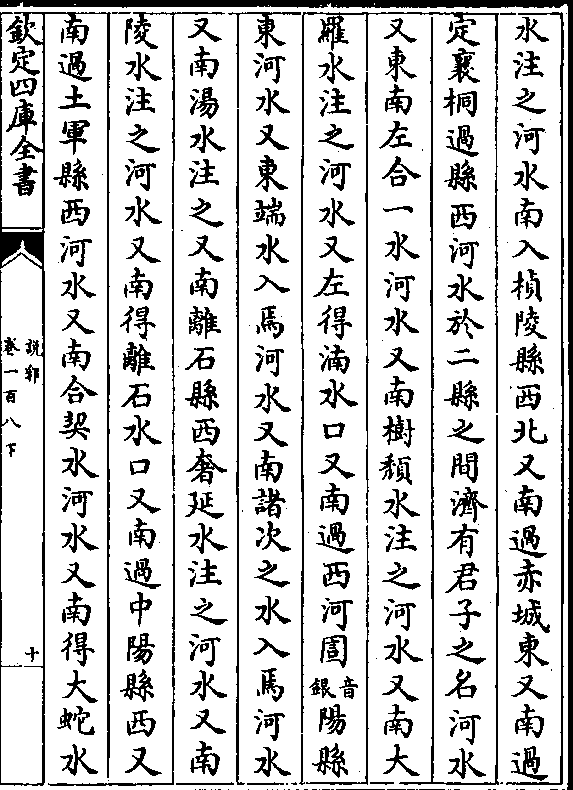 水注之河水南入楨陵縣西北又南過赤城東又南過
定襄桐過縣西河水於二縣之間濟有君子之名河水
又東南左合一水河水又南樹頹水注之河水又南大
羅水注之河水又左得湳水口又南過西河圁音銀陽縣
東河水又東端水入焉河水又南諸次之水入焉河水
又南湯水注之又南離石縣西奢延水注之河水又南
陵水注之河水又南得離石水口又南過中陽縣西又
南過土軍縣西河水又南合契水河水又南得大蛇水
欽定四庫全書
說郛
卷一百八下
十